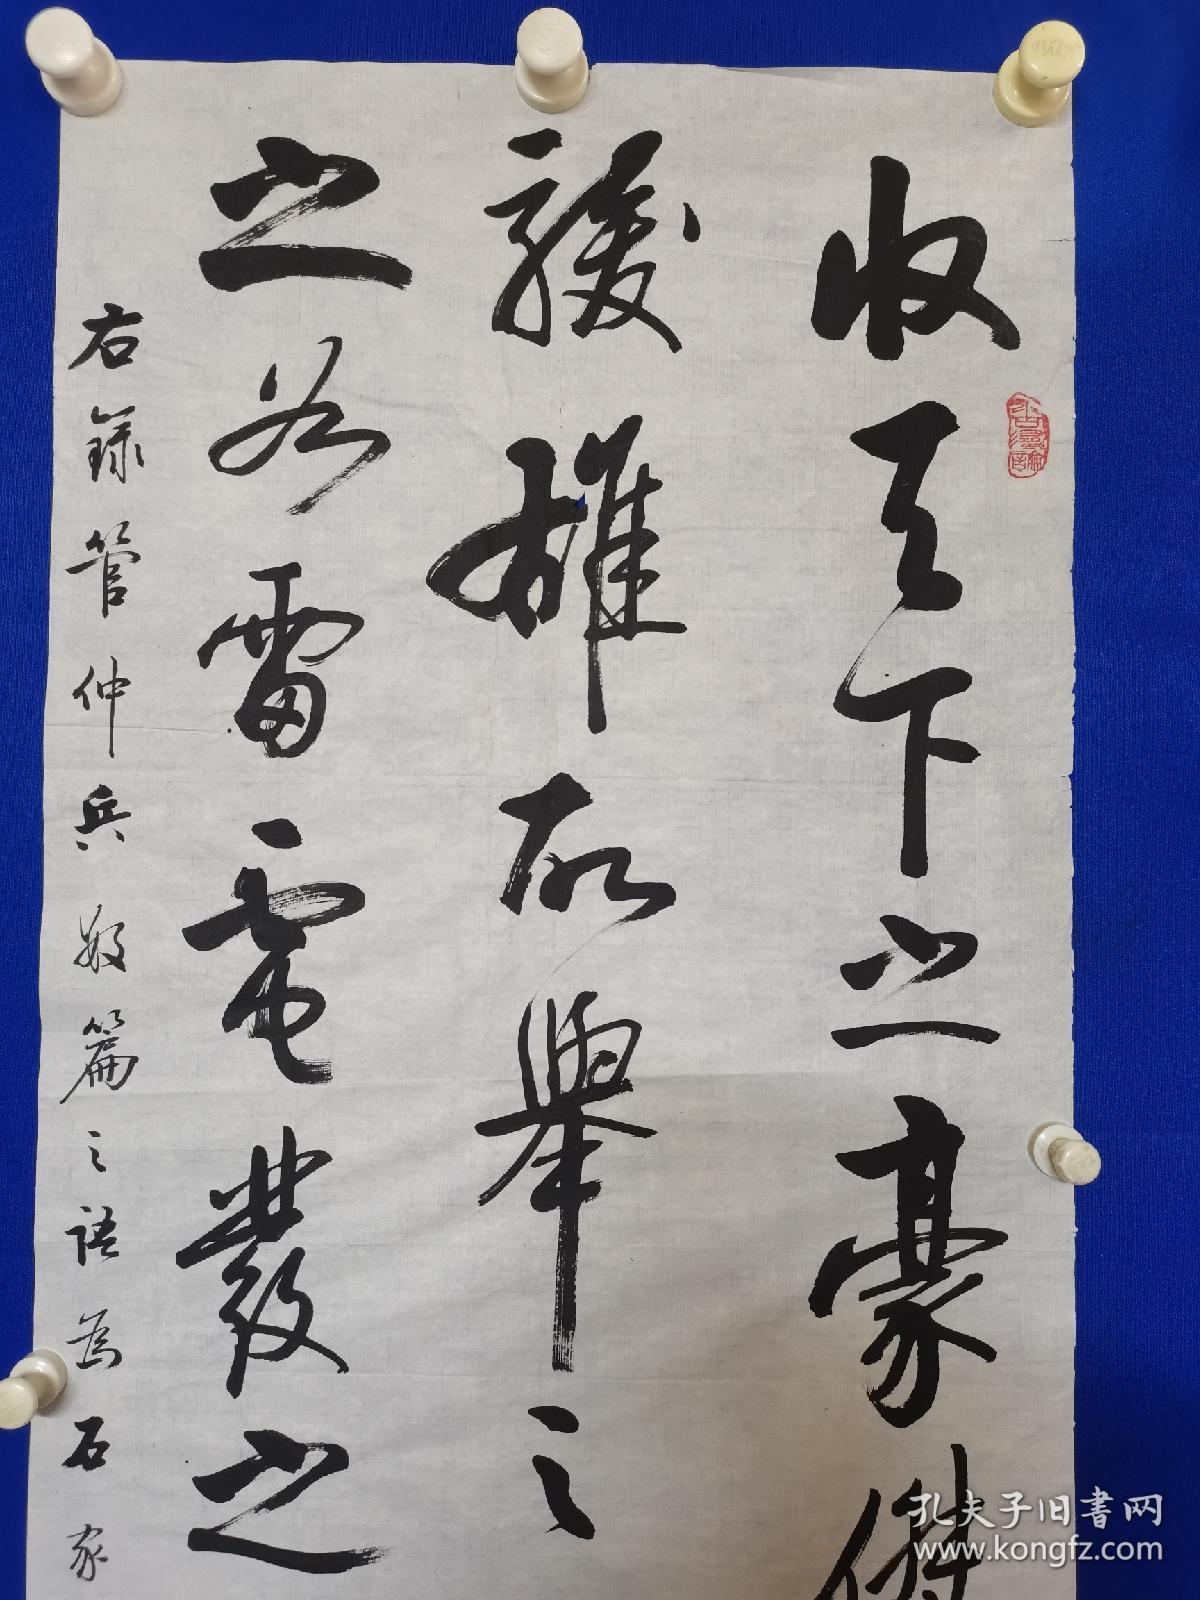 收天下之豪傑
駿雄故舉之
之如雷電發之
右錄管仲兵篇之語為石家
孔夫子旧书网
www.kongfz.com